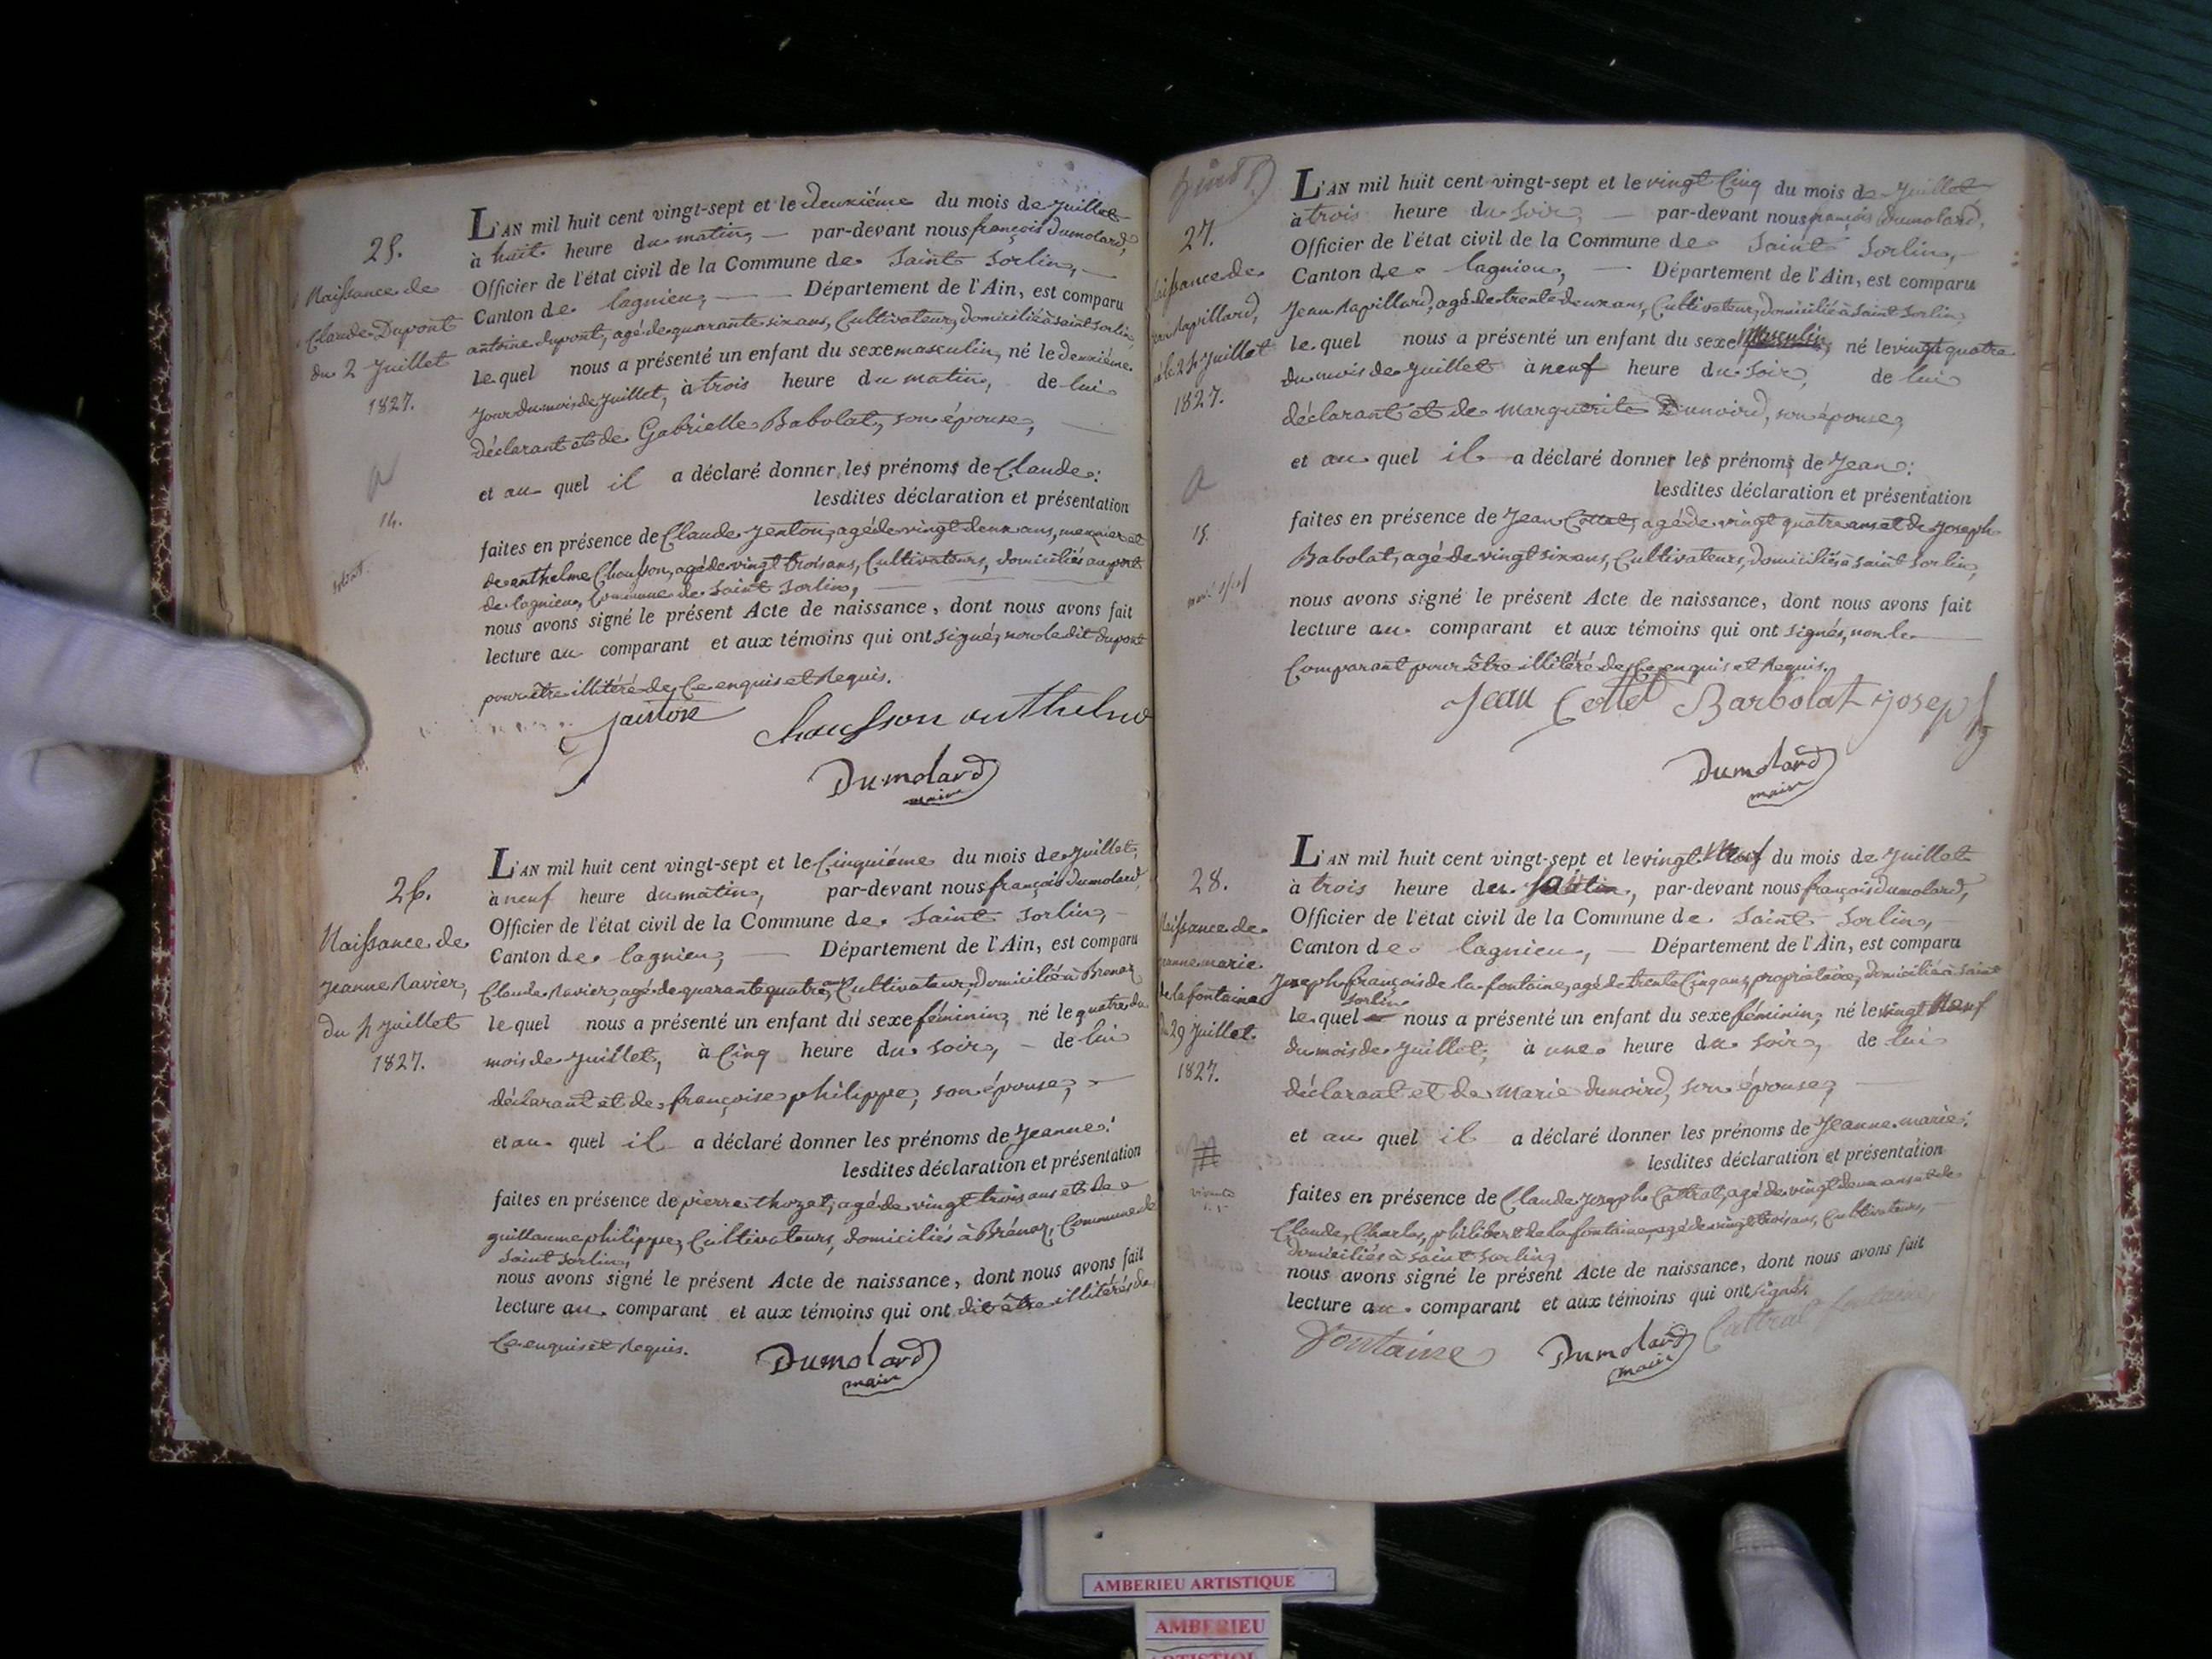 25.
Naissance de
Claude Dupont
du 2 Juillet
1827.
14.
L'AN mil huit cent vingt-sept et le deuxiéme du mois de juillet
à huit heure du matin, par-devant nous françois dumolard,
Officier de l'état civil de la Commune de Saint Sorlin,
Canton de lagnieu, Département de l'Ain, est comparu
antoine dupont, agé de quarante six ans, Cultivateur, domicilié à saint Sorlin,
le quel nous a présenté un enfant du sexe masculin, né le deuxiéme
jour du mois de juillet, à trois heure du matin, de lui
déclarant et de Gabrielle Babolat, son épouse,
et au quel il a déclaré donner les prénoms de Claude:
lesdites déclaration et présentation
faites en présence de Claude Jenton, agé de vingt deux ans, meunier et
de anthelme Chausson, agé de vingt trois ans, Cultivateurs, domiciliés au port
de lagnieu, Commune de Saint Sorlin,
nous avons signé le présent Acte de naissance, dont nous avons fait
lecture au comparant et aux témoins qui ont signé, non le dit dupont
pour être illitéré de ce enquis et requis.
Janton Chausson anthelme
Dumolard
maire
26.
Naissance de
Jeanne Ravier,
du 4 juillet
1827.
L'AN mil huit cent vingt-sept et le Cinquiéme du mois de juillet,
à neuf heure du matin, par-devant nous françois dumolard,
Officier de l'état civil de la Commune de Saint Sorlin,
Canton de lagnieu, Département de l'Ain, est comparu
Claude Ravier, agé de quarante quatre ans, Cultivateur, domicilié à Brenaz
le quel nous a présenté un enfant du sexe féminin, né le quatre du
mois de juillet, à Cinq heure du soir, de lui
déclarant et de françoise philippe, son épouse,
et au quel il a déclaré donner les prénoms de Jeanne:
lesdites déclaration et présentation
faites en présence de pierre thozet, agé de vingt trois ans et de
guillaume philippe, Cultivateurs, domiciliés à Brénaz, Commune de
Saint Sorlin,
nous avons signé le présent Acte de naissance, dont nous avons fait
lecture au comparant et aux témoins qui ont dit être illitérés de
Ce enquis et requis.
Dumolard
maire
27.
Naissance de
Jean Rapillard,
né le 24 Juillet
1827.
15.
L'AN mil huit cent vingt-sept et le vingt Cinq du mois de juillet
à trois heure du soir, par-devant nous françois dumolard,
Officier de l'état civil de la Commune de Saint Sorlin,
Canton de lagnieu, Département de l'Ain, est comparu
Jean Rapillard, agé de trente deux ans, Cultivateur, domicilié à Saint Sorlin,
le quel nous a présenté un enfant du sexe Masculin, né le vingt quatre
du mois de juillet à neuf heure du soir, de lui
déclarant et de marguerite Dunoird, son épouse,
et au quel il a déclaré donner les prénoms de Jean:
lesdites déclaration et présentation
faites en présence de Jean Cottet, agé de vingt quatre ans et de Joseph
Babolat, agé de vingt six ans, Cultivateurs, domiciliés à saint Sorlin,
nous avons signé le présent Acte de naissance, dont nous avons fait
lecture au comparant et aux témoins qui ont signés, non le
Comparant pour être illitéré de Ce enquis et requis.
Jean Cottet Barbolat joseph
Dumolard
maire
28.
Naissance de
jeanne marie
de la fontaine
du 29 Juillet
1827.
L'AN mil huit cent vingt-sept et le vingt Neuf du mois de juillet
à trois heure du par-devant nous françois dumolard,
Officier de l'état civil de la Commune de Saint Sorlin,
Canton de lagnieu, Département de l'Ain, est comparu
Joseph françois de la fontaine, agé de trente Cinq ans, propriétaire, domicilié à Saint
Sorlin
le quel nous a présenté un enfant du sexe féminin, né le vingt Neuf
du mois de juillet, à une heure du soir, de lui
déclarant et de marie dunoird, son épouse,
et au quel il a déclaré donner les prénoms de Jeanne marie:
lesdites déclaration et présentation
faites en présence de Claude Joseph Cattrat, agé de vingt deux ans et de
Claude, Charles, philibert de la fontaine, agé de vingt trois ans, Cultivateurs,
domiciliés à saint Sorlin,
nous avons signé le présent Acte de naissance, dont nous avons fait
lecture au comparant et aux témoins qui ont signé.
fontaine Dumolard Cattrat fontaine
maire
AMBERIEU ARTISTIQUE
AMBERIEU
ARTISTIQUE